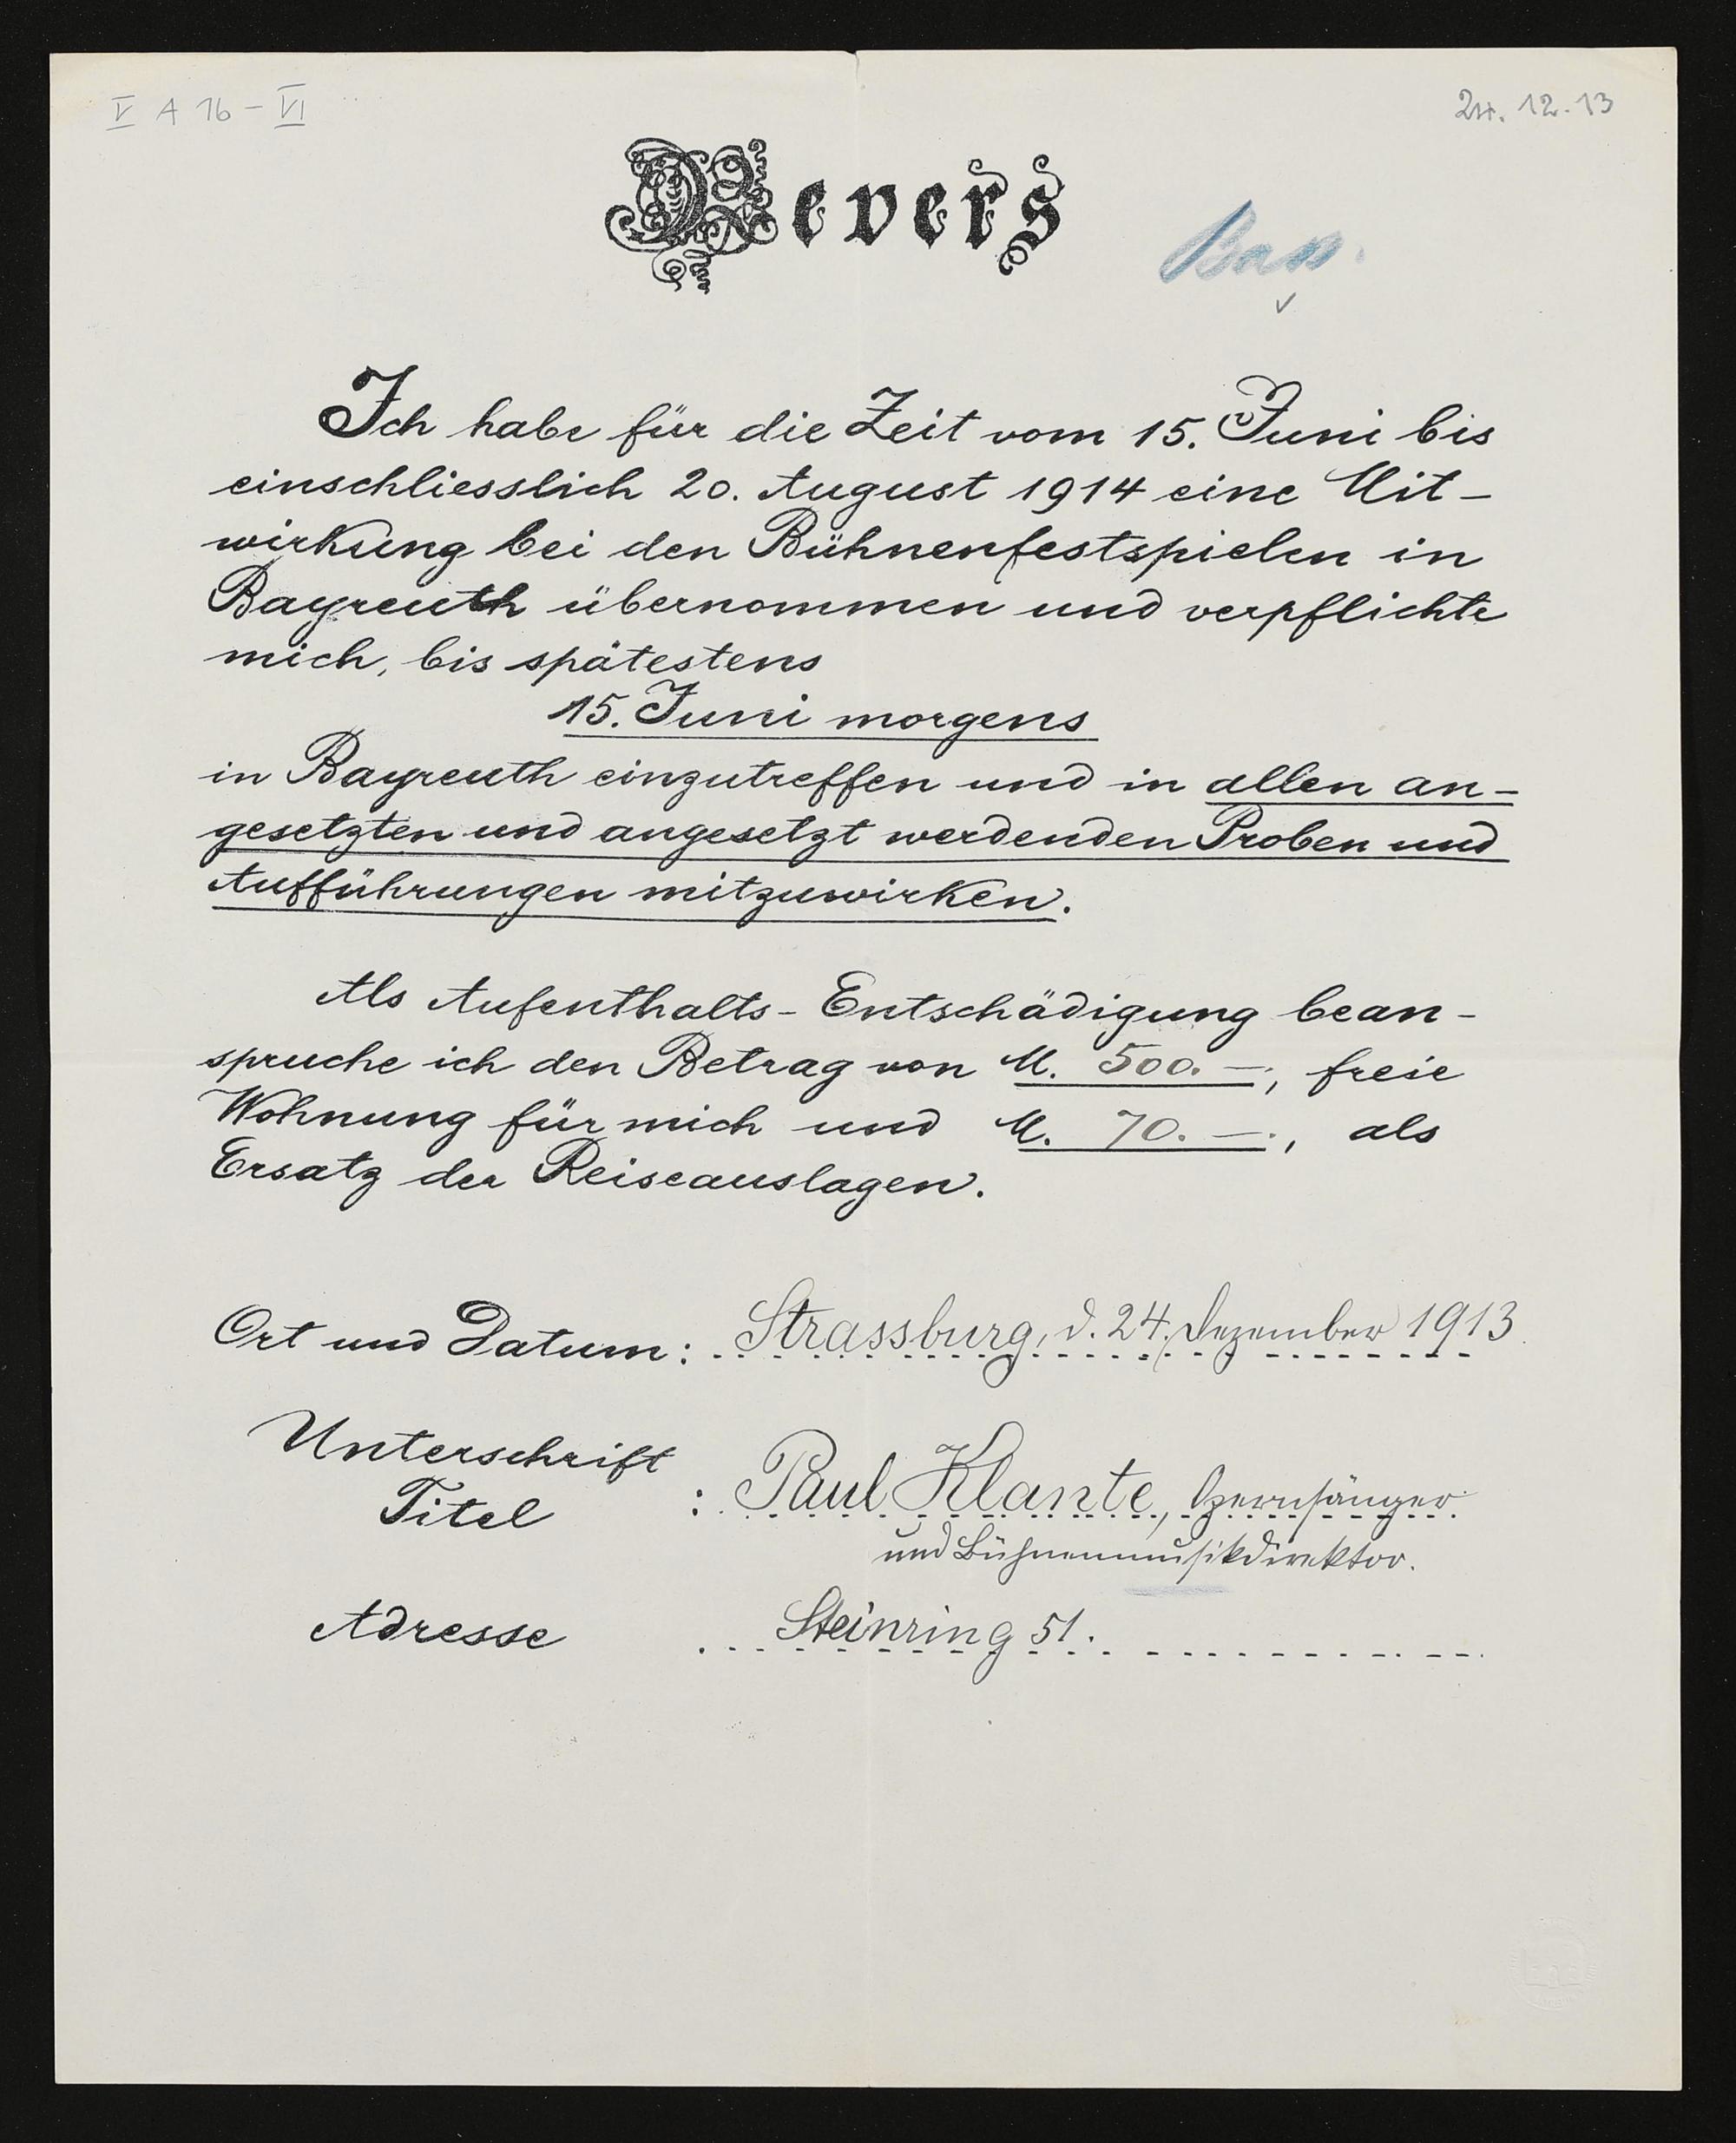 V A 16 - VI
24. 12. 13
Revers
Bass.
Ich habe für die Zeit vom 15. Juni bis
einschliesslich 20. August 1914 eine Mit-
wirkung bei den Bühnenfestspielen in
Bayreuth übernommen und verpflichte
mich, bis spätestens
15. Juni morgens
in Bayreuth einzutreffen und in allen an-
gesetzten und angesetzt werdenden Proben und
Aufführungen mitzuwirken.
Als Aufenthalts-Entschädigung bean-
spruche ich den Betrag von M. 500.-, freie
Wohnung für mich und M. 70.-, als
Ersatz der Reiseauslagen.
Ort und Datum: Strassburg, d. 24. Dezember 1913
Unterschrift
Titel : Paul Klante, Opernsänger
und Bühnenmusikdirektor.
Adresse Steinring 51.